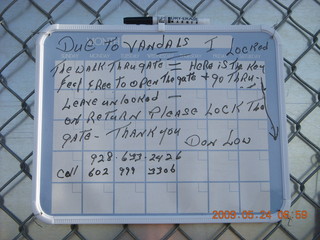 DUE TO VANDALS I LOCKED
THE WALK THRU GATE = HERE IS THE KEY
FEEL FREE TO OPEN THE GATE + GO THRU -
LEAVE UNLOCKED -
ON RETURN PLEASE LOCK THE
GATE - THANK YOU
DON LOW
928-633-2426
Call 602 999 3306
2008-05-24 08:59